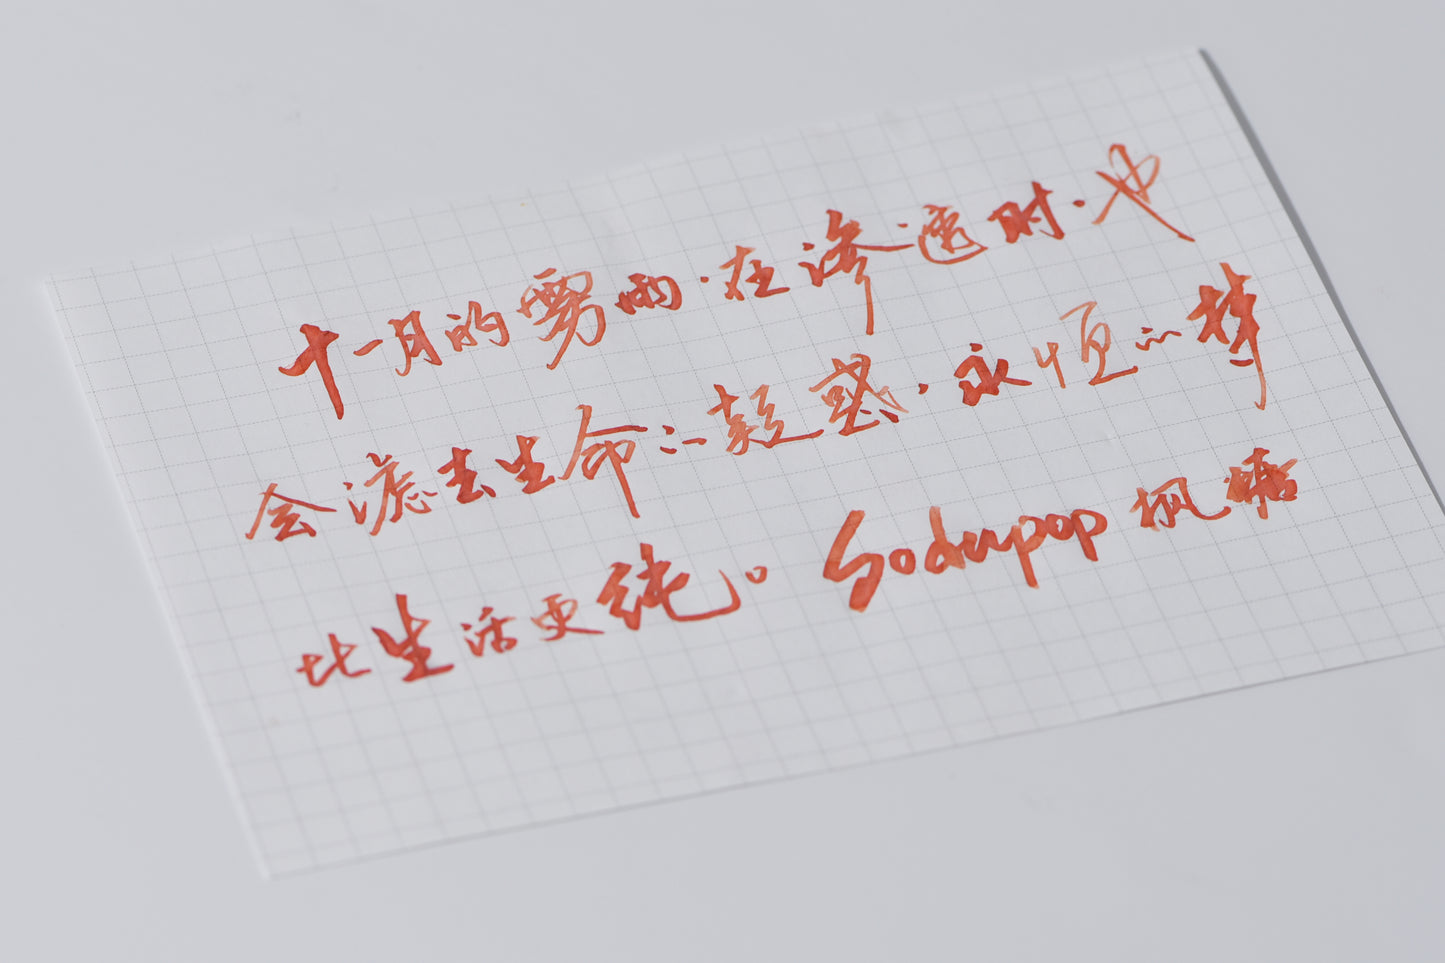 十一月的雾雨，在渗透时，也
会滤去生命的疑惑，永恒的梦
比生活更纯。Sodupop 枫晤